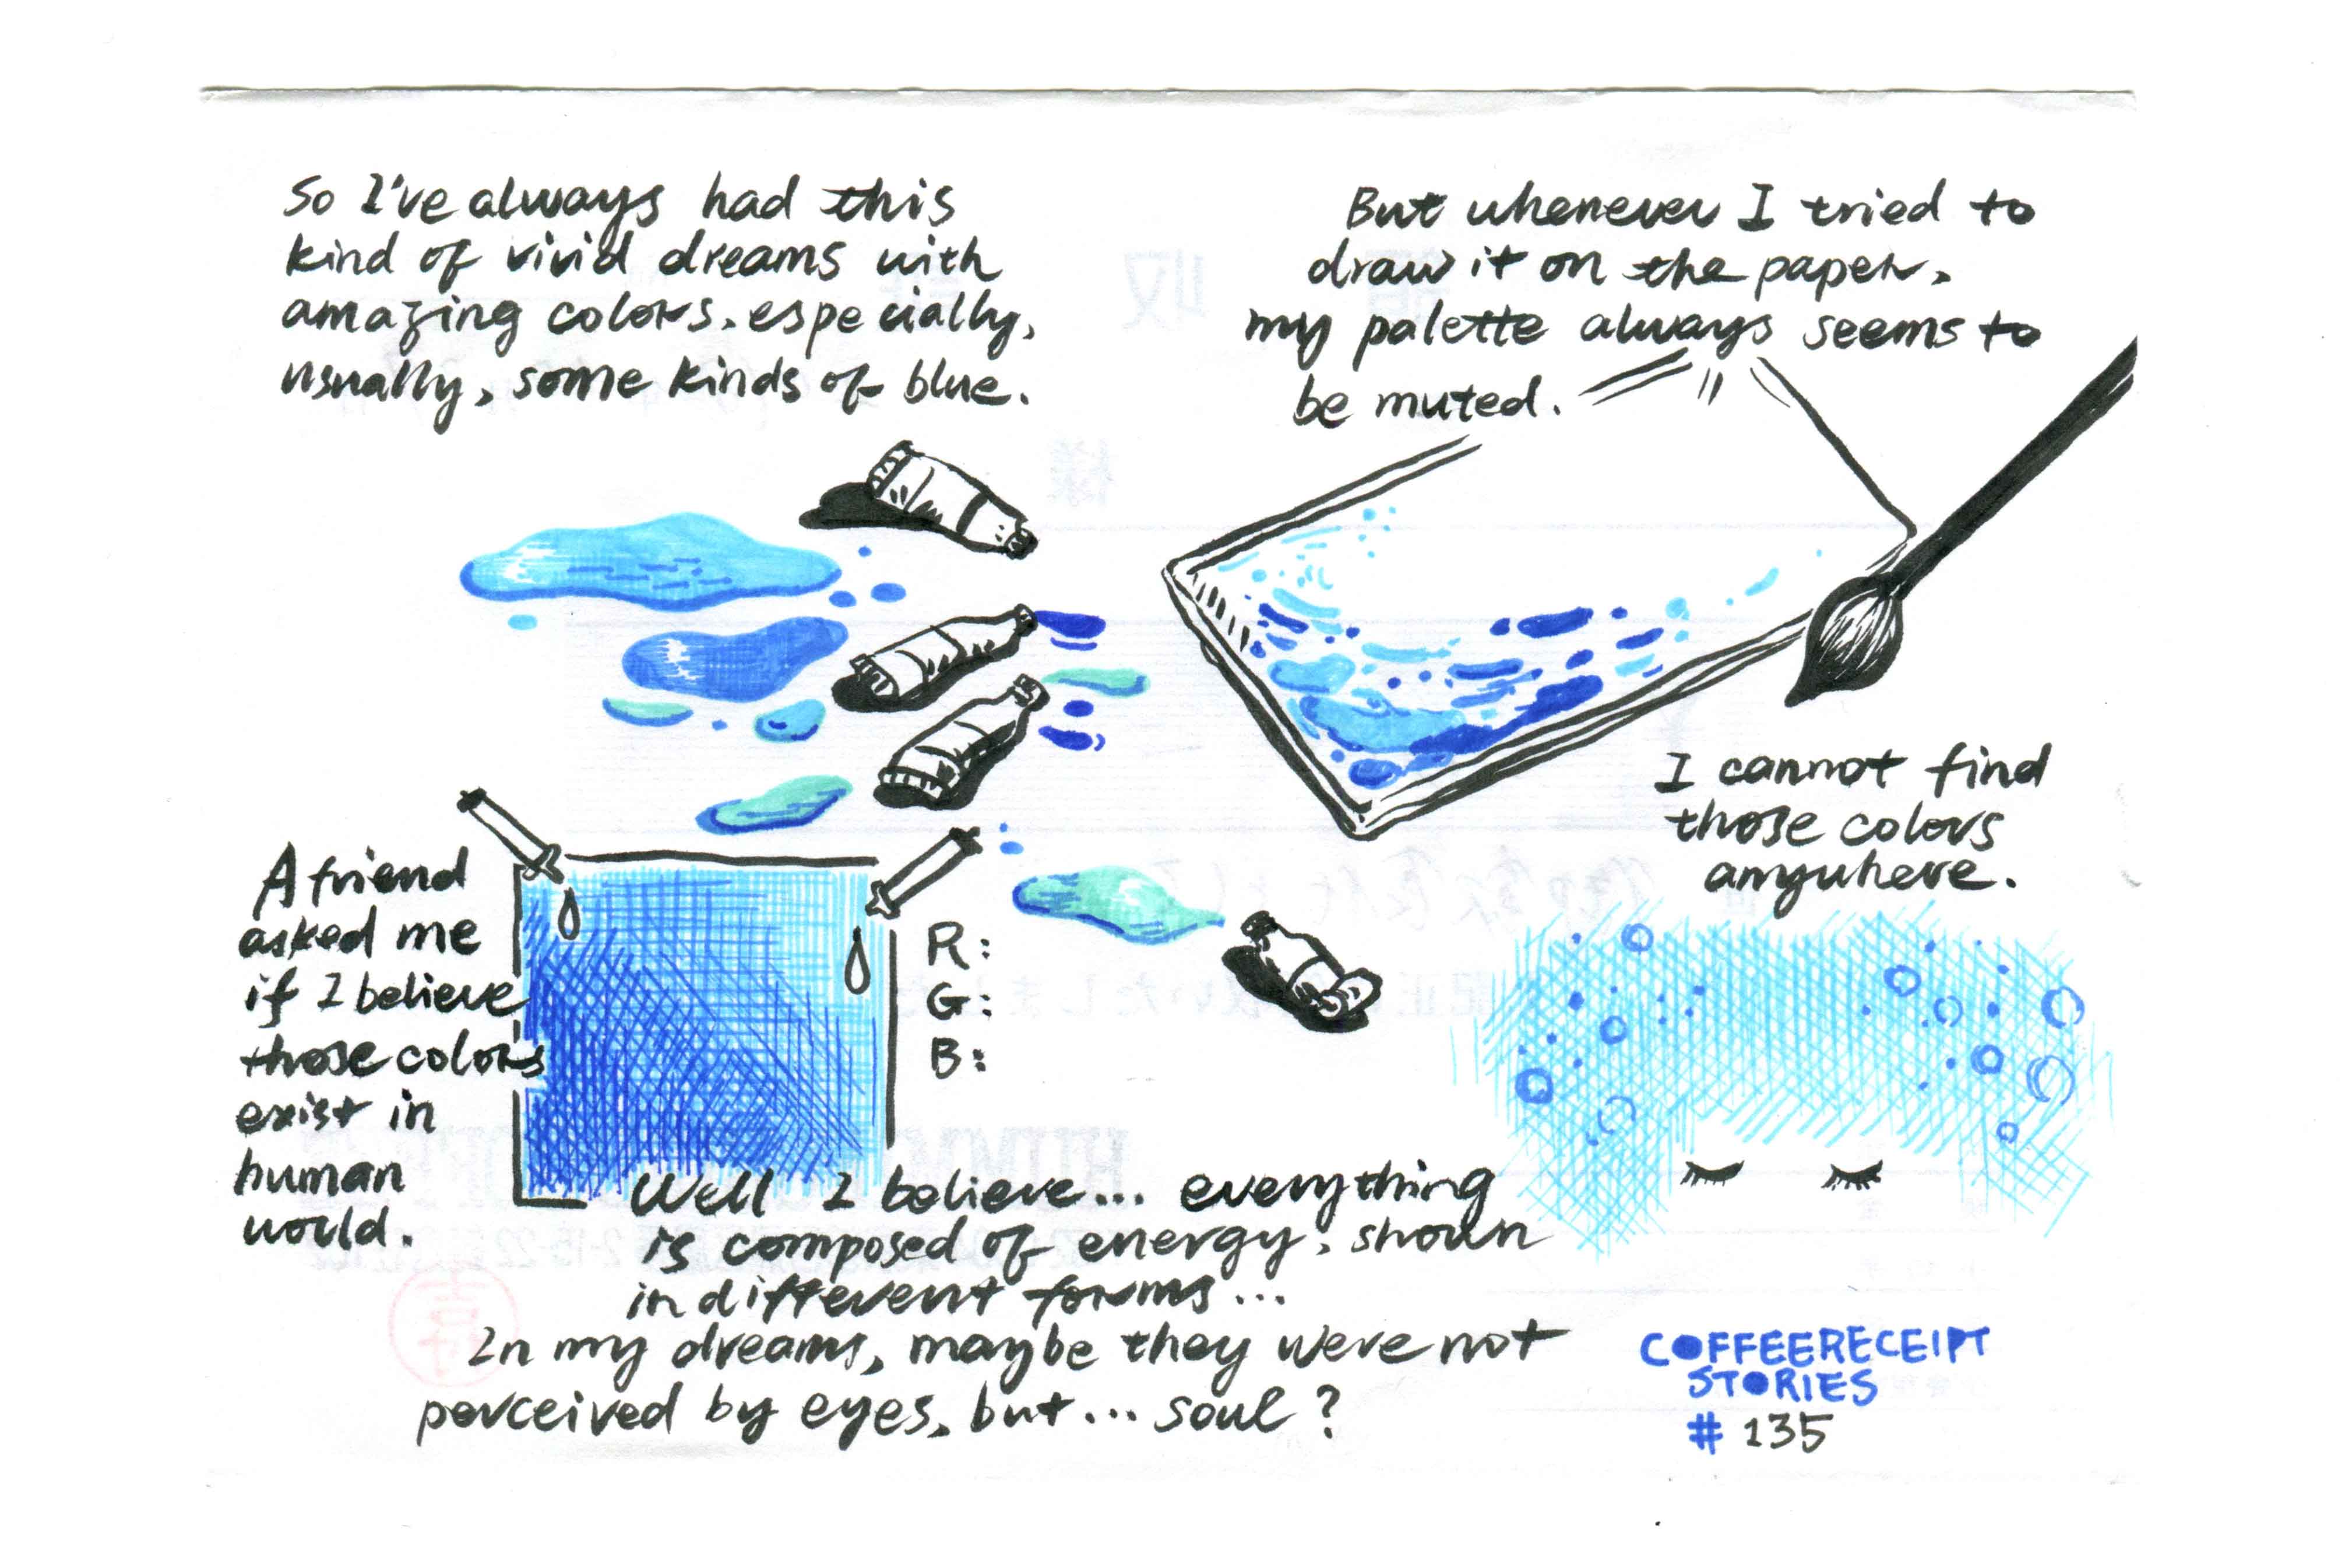 So I've always had this
kind of vivid dreams with
amazing colors, especially,
usually, some kinds of blue.
But whenever I tried to
draw it on the paper,
my palette always seems to
be muted.
I cannot find
those colors
anywhere.
A friend
asked me
if I believe
those colors
exist in
human
world.
R:
G:
B:
Well I believe... everything
is composed of energy, shown
in different forms...
In my dreams, maybe they were not
perceived by eyes, but... soul?
COFFEERECEIPT
STORIES
# 135